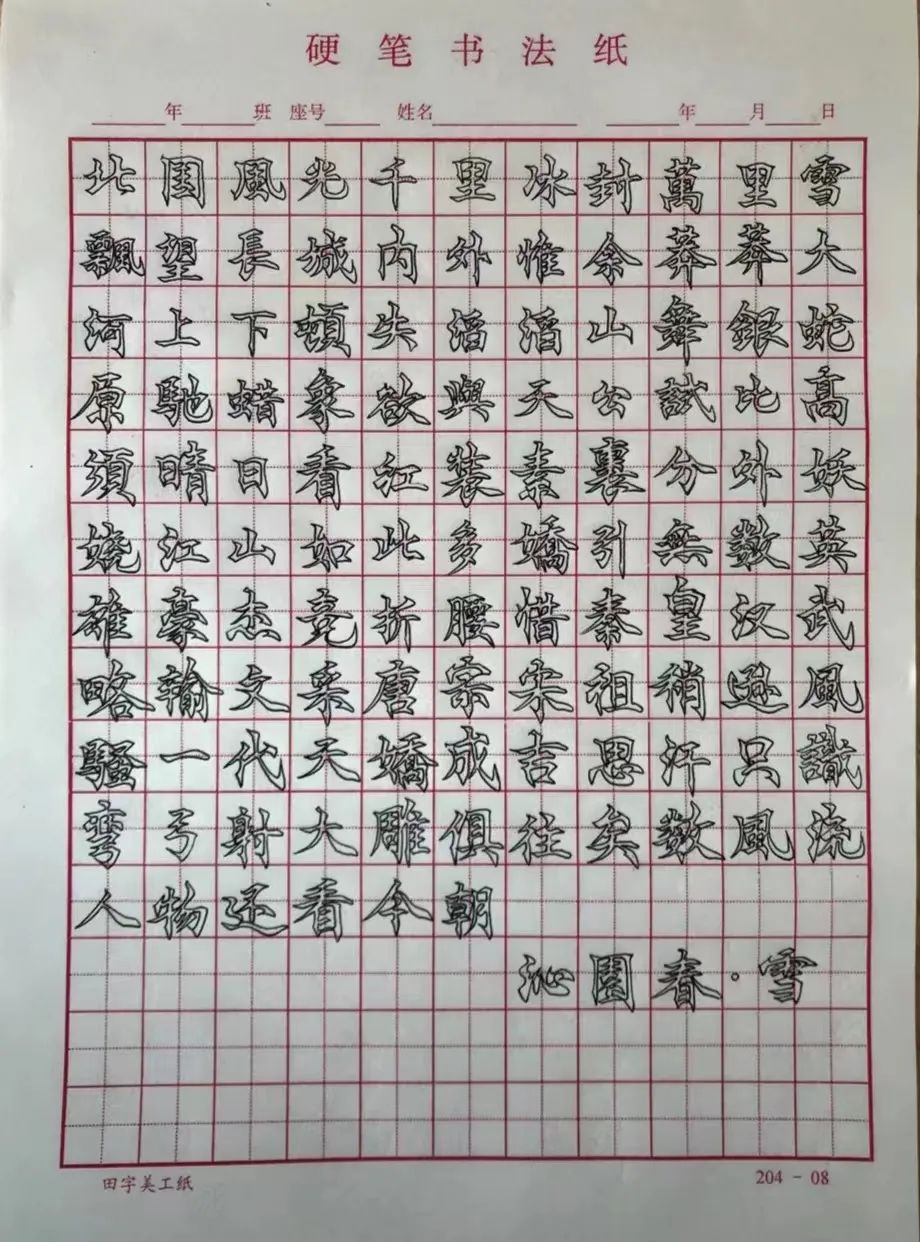 硬笔书法纸
年 班 座号 姓名 年 月 日
北国風光千里冰封萬里雪
飄望長城内外惟余莽莽大
河上下頓失滔滔山舞銀蛇
原馳蜡象欲與天公試比高
須晴日看红装素裹分外妖
娆江山如此多嬌引無数英
雄豪杰竞折腰惜秦皇汉武
略輸文采唐宗宋祖稍遜風
騷一代天嬌成吉思汗只識
弯弓射大雕俱往矣数風流
人物还看今朝
沁園春·雪
田字美工纸 204-08